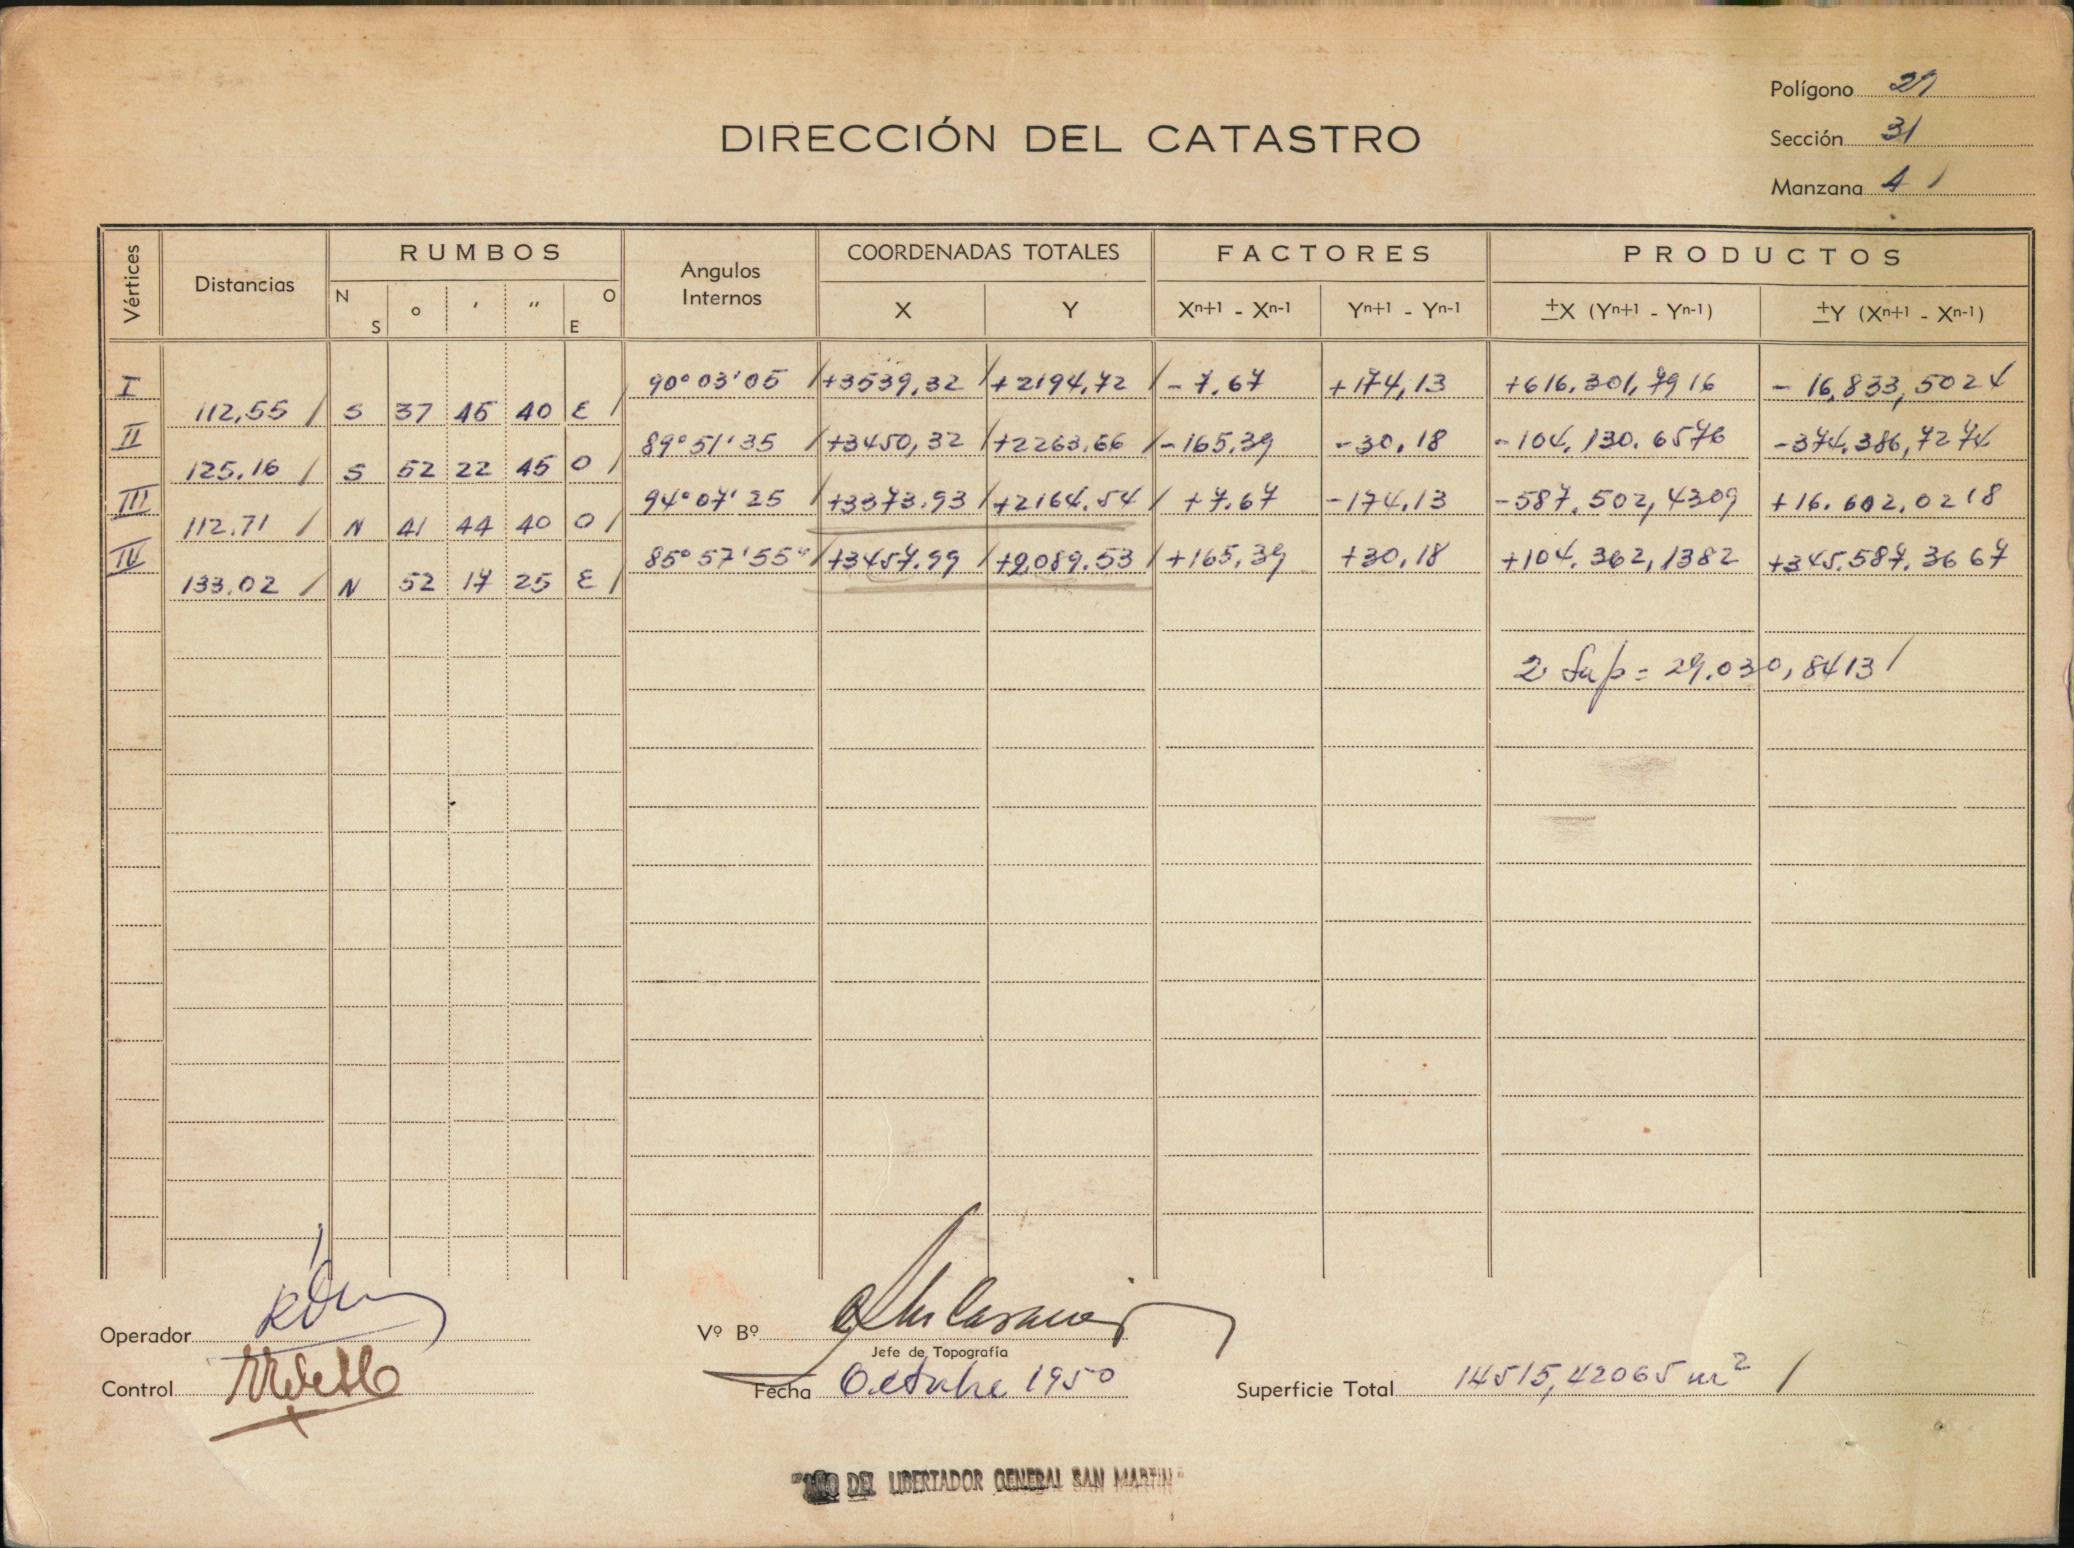 Polígono
DIRECCIÓN DEL CATASTRO
Sección 31
Manzana
Vértices Distancias RUMBOS Angulos Internos COORDENADAS TOTALES FACTORES PRODUCTOS
N S ° ' " O E X Y Xn+1 - Xn-1 Yn+1 - Yn-1 ±X (Yn+1 - Yn-1) ±Y (Xn+1 - Xn-1)
I 90°03'05 / +3539,32 / +2194,72 / -7.67 +174,13 +616.301,7916 - 16,833,5024
112,55 / S 37 45 40 E /
II 89°51'35 / +3450,32 / +2263.66 / -165.39 -30.18 -104.130.6576 -374.386,7274
125.16 / S 52 22 45 O /
III 94°07'25 / +3373.93 / +2164.54 / +7.67 -174.13 -587.502,4309 +16.602.0218
112.71 / N 41 44 40 O /
IV 85°57'55" / +3457.99 / +2,089.53 / +165,39 +30,18 +104.362,1382 +345.587.3667
133.02 / N 52 17 25 E /
2 Sup = 29.030,8413 /
Operador
Vº Bº
Jefe de Topografía
Control
Fecha Octubre 1950
Superficie Total 14515,42065 m² /
DEL LIBERTADOR GENERAL SAN MARTIN"